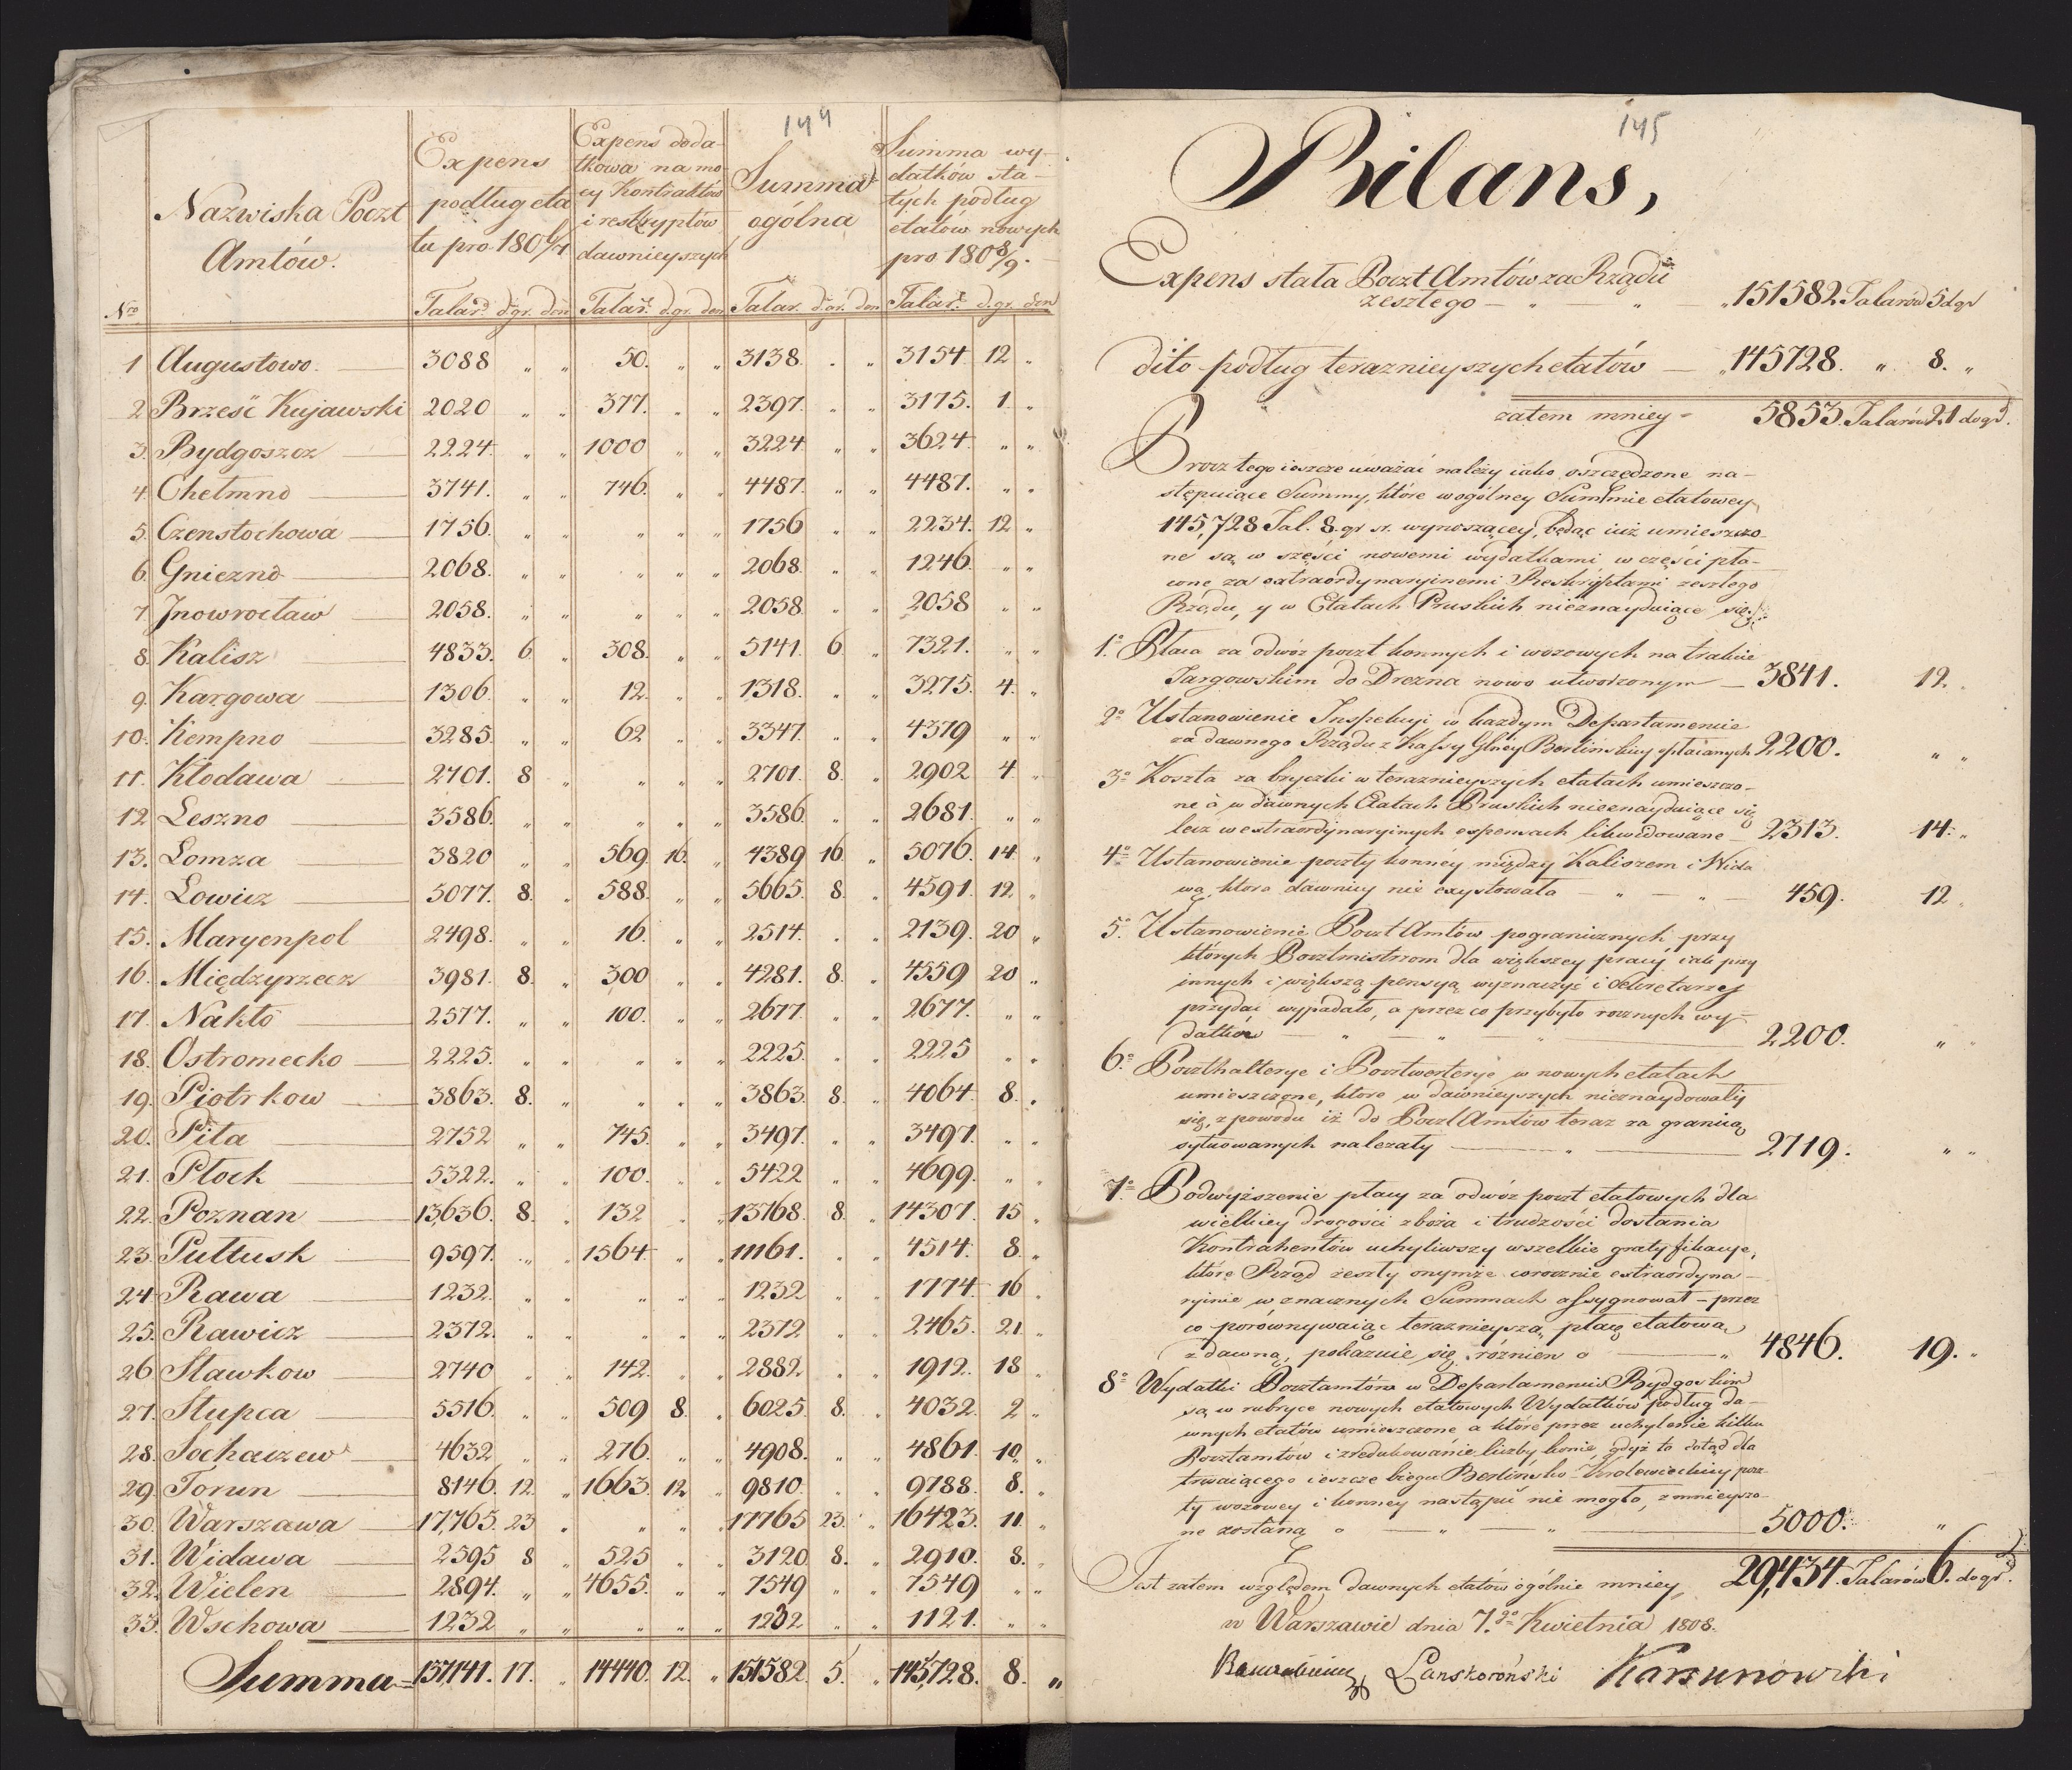 144
Nro
Nazwiska Poczt
Amtów.
Expens
podług eta
tu pro 1806/7
Talar. d.gr. den
Expens doda-
tkowa na mo-
cy Kontraktów
i reskryptów
dawnieyszych
Talar. d.gr. den
Summa
ogólna
Talar. d.gr. den
Summa wy-
datków sta-
łych podług
etatów nowych
pro 1808/9.
Talar. d.gr. den
1 Augustowo. 3088 „ „ 50. „ „ 3138. . „ 3154 12 „
2 Brześć Kujawski 2020 „ „ 377. „ „ 2397. „ „ 3175. 1. „
3. Bydgoszcz 2224. „ „ 1000 „ „ 3224. „ „ 3624. „ „
4. Chełmno 3741. „ „ 746. „ „ 4487. „ „ 4487. „ „
5. Czenstochowa 1756. „ „ „ „ „ 1756 „ „ 2234. 12 „
6. Gniezno 2068. „ „ „ „ „ 2068. „ „ 1246. „ „
7. Jnowrocław 2058. „ „ „ „ „ 2058. „ „ 2058 „ „
8. Kalisz 4833. 6. „ 308. „ „ 5141. 6. „ 7321. „ „
9. Kargowa 1306. „ „ 12. „ „ 1318. „ „ 3275. 4. „
10. Kempno 3285. „ „ 62 „ „ 3347. „ „ 4379 „ „
11. Kłodawa 2701. 8 „ „ „ „ 2701. 8. „ 2902 4. „
12. Leszno 3586. „ „ „ „ „ 3586. „ „ 2681. „ „
13. Lomza 3820 „ „ 569. 16. „ 4389 16. „ 5076. 14. „
14. Lowicz 5077. 8. „ 588. „ „ 5665. 8. „ 4591. 12. „
15. Maryenpol 2498. „ „ 16. „ „ 2514. . „ 2139. 20 „
16. Międzyrzecz 3981. 8. „ 300 „ „ 4281. 8. „ 4559 20 „
17. Nakło 2577. „ „ 100. „ „ 2677. „ „ 2677. „ „
18. Ostromecko 2225. „ „ „ „ „ 2225. „ „ 2225 „ „
19. Piotrkow 3863. 8. „ „ „ „ 3863. 8. „ 4064. 8. „
20. Piła 2752 „ „ 745. „ „ 3497. „ „ 3497. „ „
21. Płock 5322. „ „ 100. „ „ 5422 „ „ 4699. „ „
22. Poznan 13,636. 8. „ 132 „ „ 13768. 8. „ 14307. 15 „
23. Pułtusk 9597. „ „ 1564. „ „ 11161. „ „ 4514. 8. „
24. Rawa 1232. „ „ „ „ „ 1232 „ „ 1774. 16 „
25. Rawicz 2372. „ „ „ „ „ 2372 „ „ 2465. 21. „
26. Sławkow 2740 „ „ 142. „ „ 2882. „ „ 1912. 18 „
27. Słupca 5516. „ „ 509 8. „ 6025. 8. „ 4032. 2 „
28. Sochaczew 4632 „ „ 276. „ „ 4908. „ „ 4861. 10. „
29. Torun 8146. 12. „ 1663. 12. „ 9810. „ „ 9788. 8. „
30. Warszawa 17,765. 23 „ „ „ „ 17765 23. „ 16423. 11. „
31. Widawa 2595 8 „ 525 „ „ 3120. 8. „ 2910. 8. „
32. Wielen 2894. „ „ 4655. „ „ 7549 „ „ 7549 „ „
33. Wschowa 1232 „ „ „ „ „ 1232 „ „ 1121. „ „
Summa 137,141. 17. „ 14440. 12. „ 151582. 5. „ 145,728. 8. „
145
Bilans,
Expens stała Poczt Amtów za Rządu
zeszłego „ „ „ 151582. Talarów 5 dgr
dito podług teraznieyszych etatów „ 145728. „ 8. „
zatem mniey 5853. Talarów 21 dogr.
Procz tego ieszcze uważać należy iako oszczędzone na-
stępuiące Summy, które w ogólney Summie etatowey
145,728 Tal. 8. gr sr. wynoszącey, będąc iuż umieszczo-
ne są w części nowemi wydatkami, w części pła-
cone za extraordynaryinemi Reskryptami zeszłego
Rządu, y w Etatach Pruskich nieznayduiące się.
1.o Płaca za odwóz poczt konnych i wozowych na trakcie
Targowskim do Drezna nowo utworzonym 3841. 12.
2.o Ustanowienie Inspekcyi w każdym Departamencie
za dawnego Rządu z Kassy Głney Berlińskiey opłacanych 2200. „ „
3.o Koszta za bryczki w teraznieyszych etatach umieszczo-
ne a w dawnych Etatach Pruskich nieznayduiące się
lecz w extraordynaryinych expensach likwidowane 2313. 14. „
4.o Ustanowienie poczty konney między Kaliszem i Wida
wą, która dawniey nie exystowała 459. 12 „
5.o Ustanowienie Poczt Amtów pogranicznych przy
których Pocztmistrzom dla większey pracy iak przy
innych i większą pensyą wyznaczyć i Sekretarzy
przydać wypadało, a przez co przybyło rocznych wy-
datków „ „ „ 2200. „ „
6.o Poczthalterye i Pocztwerterye w nowych etatach
umieszczone, które w dawnieyszych nieznaydowały
się, z powodu iż do Poczt Amtów teraz za granicą
sytuowanych należały „ 2719. „ „
7.o Podwyższenie płacy za odwóz poczt etatowych dla
wielkiey drogości zboża i trudności dostania
Kontrahentów uchyliwszy wszelkie gratyfikacye,
które Rząd zeszły onymże corocznie extraordyna-
ryinie w znacznych Summach assygnował – przez
co porównywaiąc teraznieyszą płacę etatową
z dawną, pokazuie się róznica „ 4846. 19. „
8.o Wydatki Pocztamtów w Departamencie Bydgoskim
są w rubryce nowych etatowych Wydatków podług da-
wnych etatów umieszczone a które przez uchylenie kilku
Pocztamtów i zredukowanie liczby konie, gdyż to dotąd dla
trwaiącego ieszcze biegu Berlińsko-Krolewieckiey pocz-
ty wozowey i konney nastąpić nie mogło, zmnieyszo-
ne zostaną „ „ 5000. „
Jest zatem względem dawnych etatów ogólnie mniey, 29,434. Talarów 6. dogr.
w Warszawie dnia 7.go Kwietnia 1808.
Lanskoroński